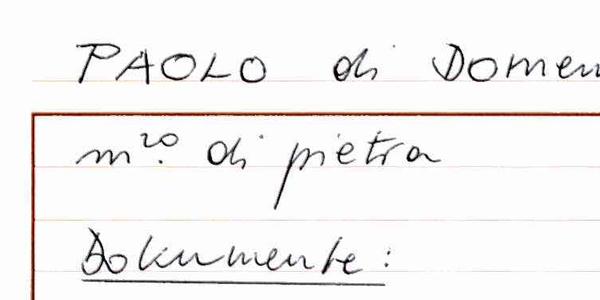 PAOLO di Domen
m.ro di pietra
Dokumente: